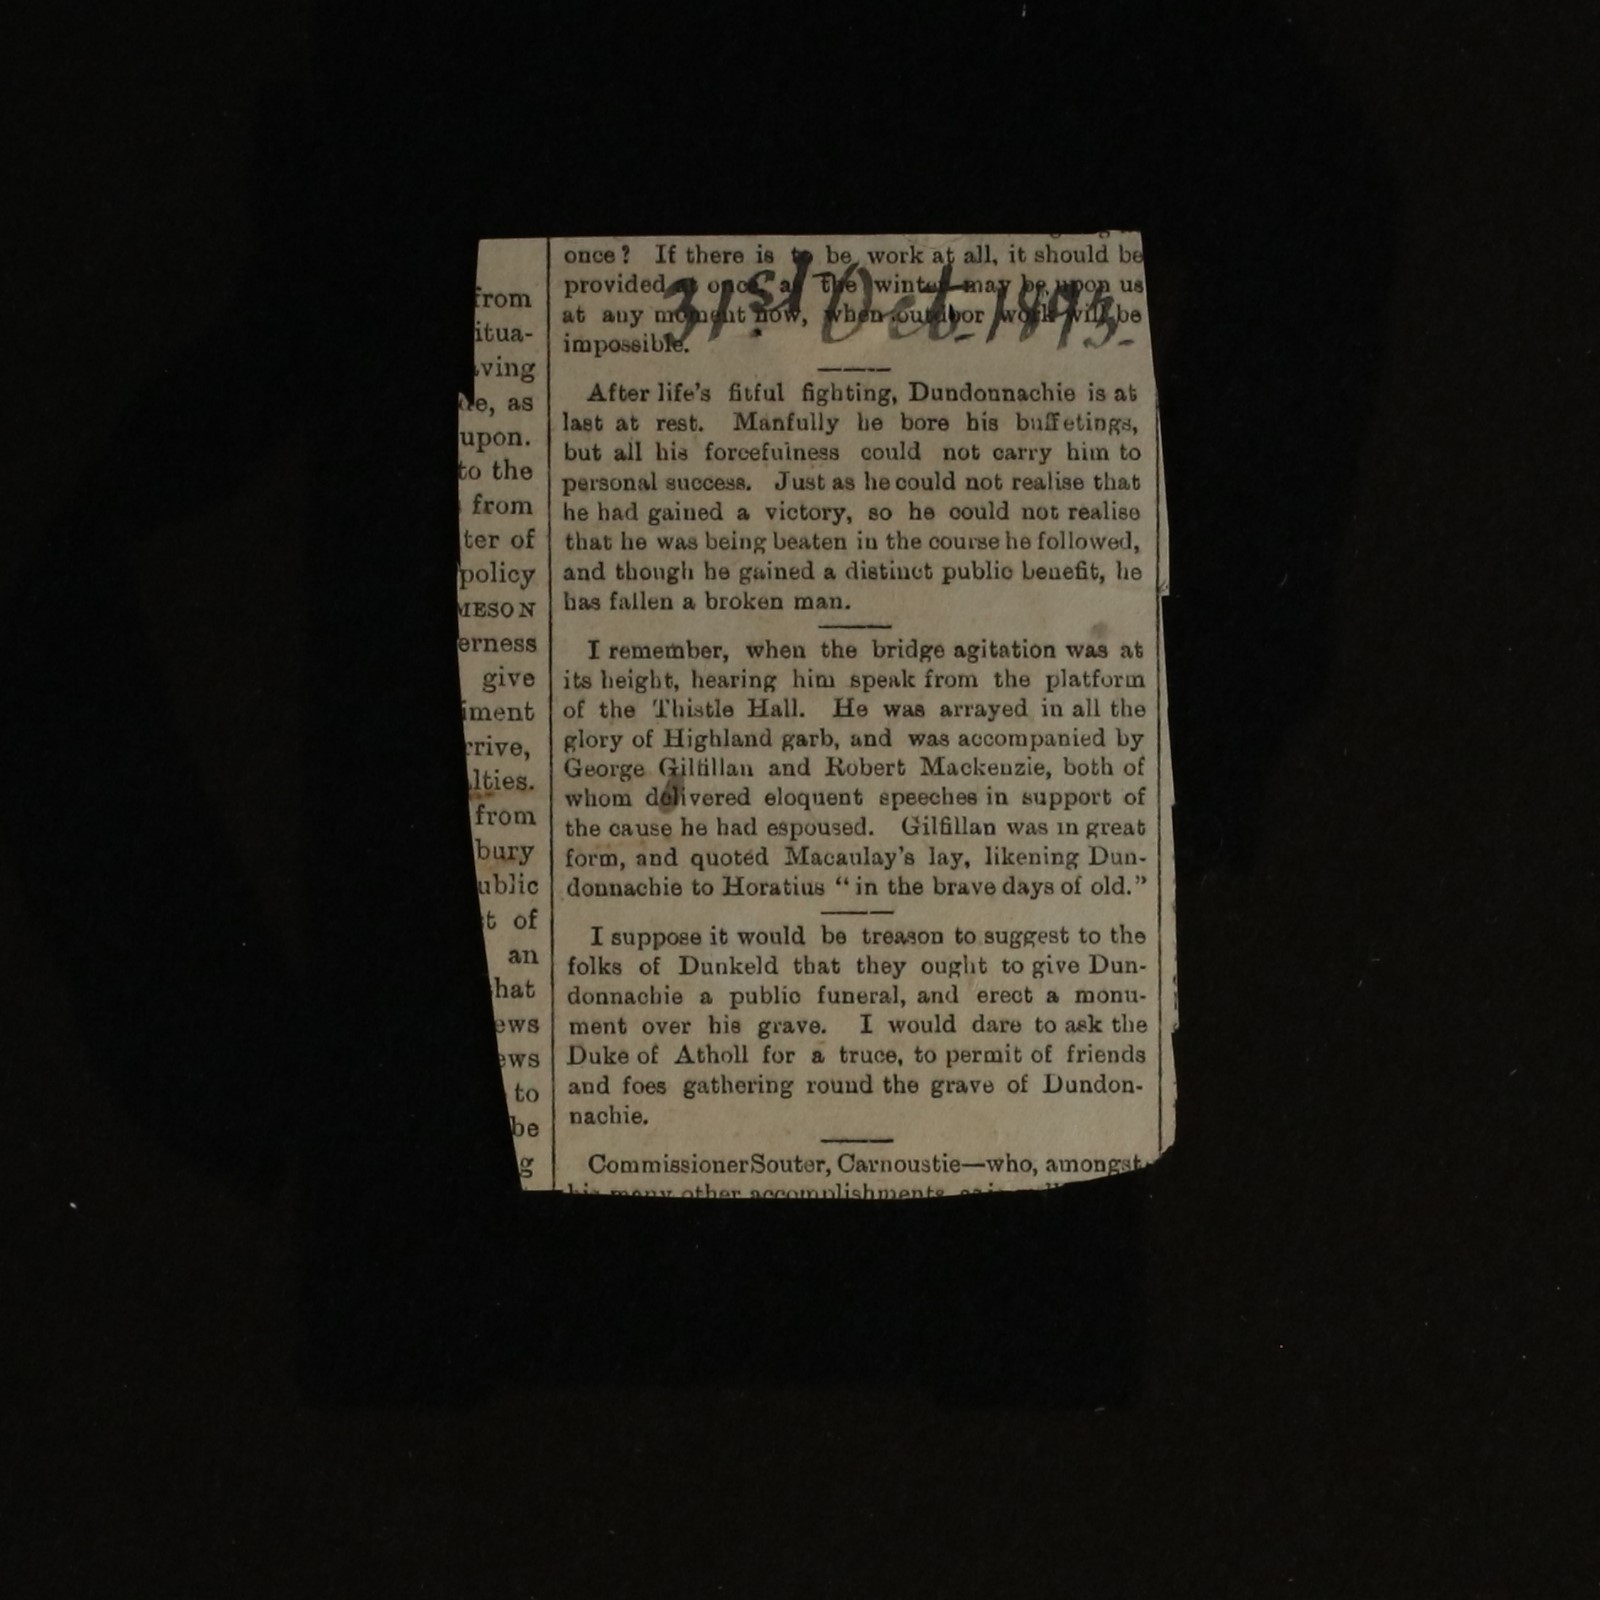 from
itua-
ving
de, as
upon.
to the
from
ter of
policy
MESON
erness
give
iment
rrive,
lties.
from
bury
ublic
t of
an
hat
ews
ews
to
be
g
once? If there is to be work at all, it should be
provided at once, as the winter may be upon us
at any moment now, when outdoor work will be
impossible.
31st Oct. 1893.
After life's fitful fighting, Dundonnachie is at
last at rest. Manfully he bore his buffetings,
but all his forcefulness could not carry him to
personal success. Just as he could not realise that
he had gained a victory, so he could not realise
that he was being beaten in the course he followed,
and though he gained a distinct public benefit, he
has fallen a broken man.
I remember, when the bridge agitation was at
its height, hearing him speak from the platform
of the Thistle Hall. He was arrayed in all the
glory of Highland garb, and was accompanied by
George Gilfillan and Robert Mackenzie, both of
whom delivered eloquent speeches in support of
the cause he had espoused. Gilfillan was in great
form, and quoted Macaulay's lay, likening Dun-
donnachie to Horatius "in the brave days of old."
I suppose it would be treason to suggest to the
folks of Dunkeld that they ought to give Dun-
donnachie a public funeral, and erect a monu-
ment over his grave. I would dare to ask the
Duke of Atholl for a truce, to permit of friends
and foes gathering round the grave of Dundon-
nachie.
Commissioner Souter, Carnoustie—who, amongst
his many other accomplishments,